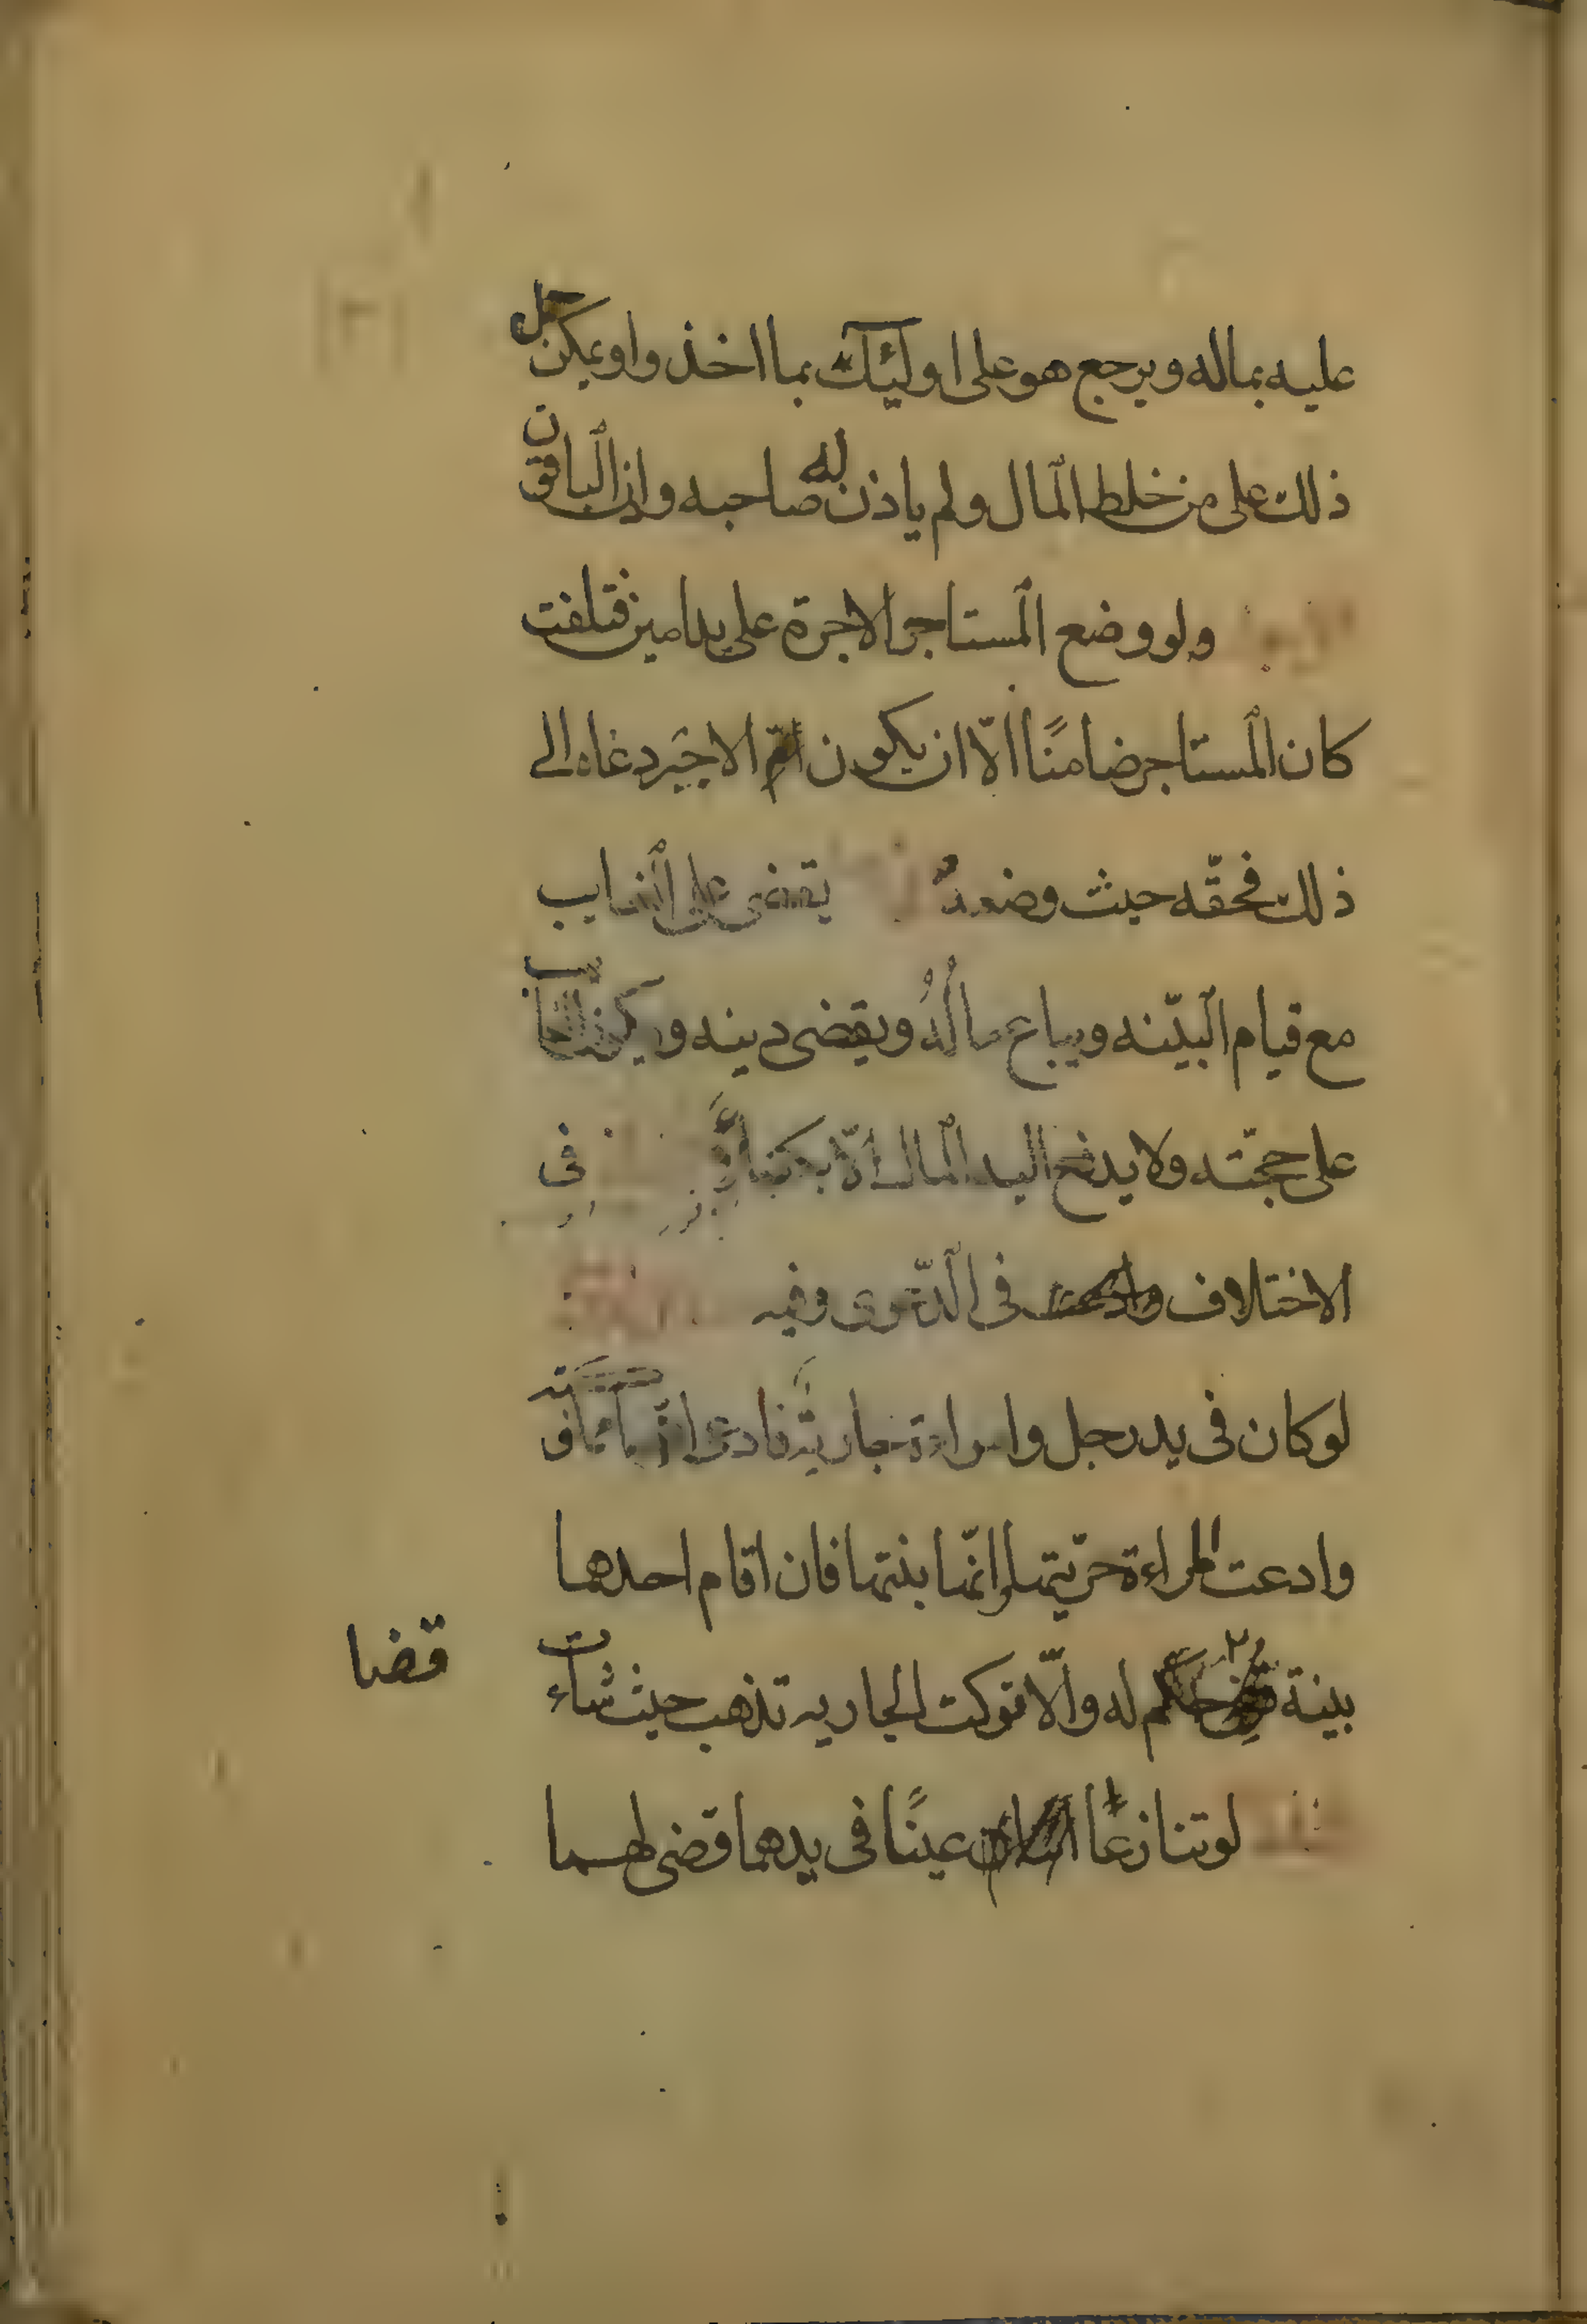 عليه بماله ويرجع هو على اولئك بما اخذ واو يمكن حمل
ذلك على من خلط المال ولم ياذن له صاحبه واذن الباقون
ولو وضع المستاجر الاجرة على يد امين فتلفت
كان المستاجر ضامنًا الّا ان يكون الاجير دعاه الى
ذلك فحقّه حيث وضعه يقضى على الغايب
مع قيام البيّنه ويباع ماله ويقضى دينه ويكون الغايب
على حجّته ولا يدفع اليه المال الّا بكفلاء فى
الاختلاف فى الدّعوى وفيه
لو كان فى يد رجل وامراءة جارية فادعى انّها مملوكته
وادعت المراءة حرّيتها وانّها بنتها فان اقام احدهما
بينة قضى له والّا تركت الجاريه تذهب حيث شاءت
لو تنازعا عينًا فى يدهما قضى لهما
قضا